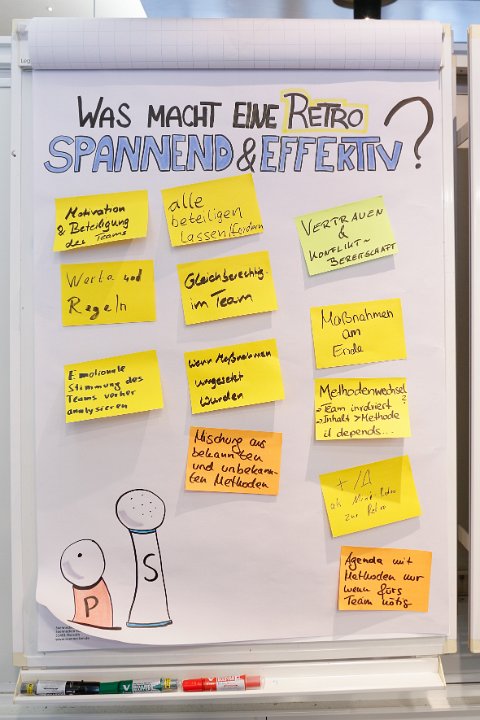 WAS MACHT EINE RETRO
SPANNEND & EFFEKTIV?
Motivation
& Beteiligung
des Teams
Werte und
Regeln
Emotionale
Stimmung des
Teams vorher
analysieren
alle
beteiligen
lassen/fordern
Gleichberechtig.
im Team
Wenn Maßnahmen
umgesetzt
wurden
Mischung aus
bekannten
und unbekann-
ten Methoden
VERTRAUEN
&
KONFLIKT-
BEREITSCHAFT
Maßnahmen
am
Ende
Methodenwechsel?
→ Team involviert
→ Inhalt > Methode
it depends...
+/Δ
als Mini-Retro
zur Retro
Agenda mit
Methoden nur
wenn fürs
Team nötig
P
S